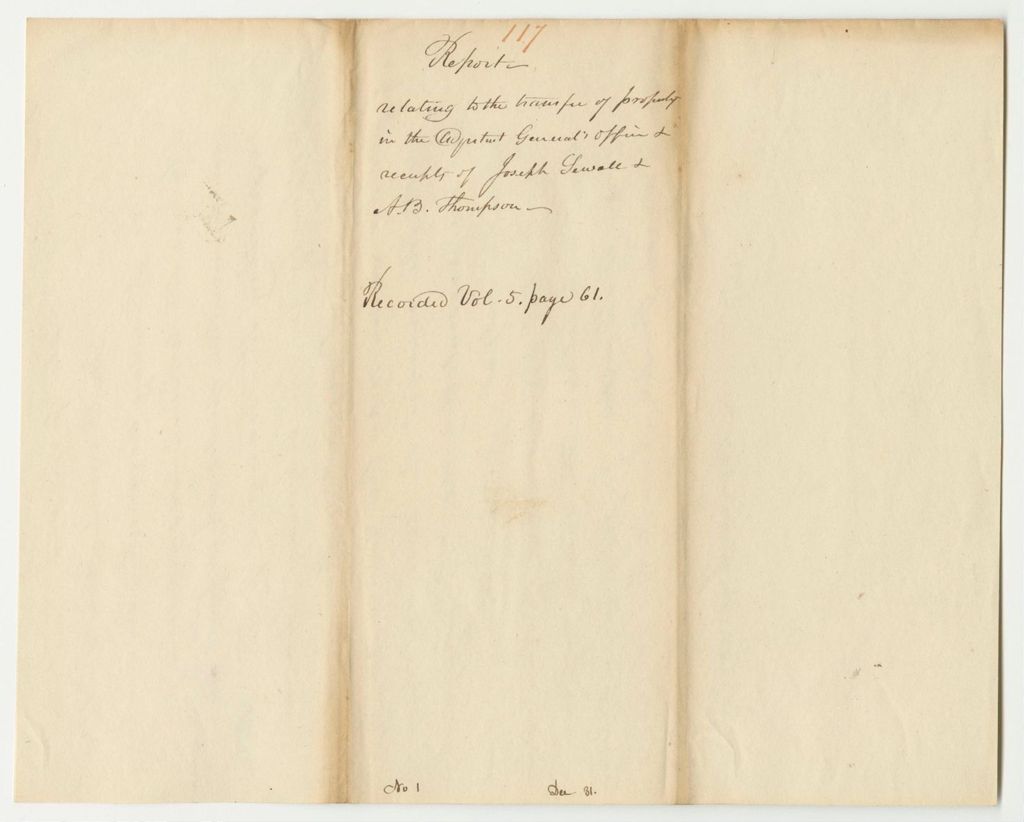 117
Report
relating to the transfer of property
in the Adjutant General's office &
receipts of Joseph Sewall &
A.B. Thompson
Recorded Vol. 5. page 61.
No 1
Dec 31.